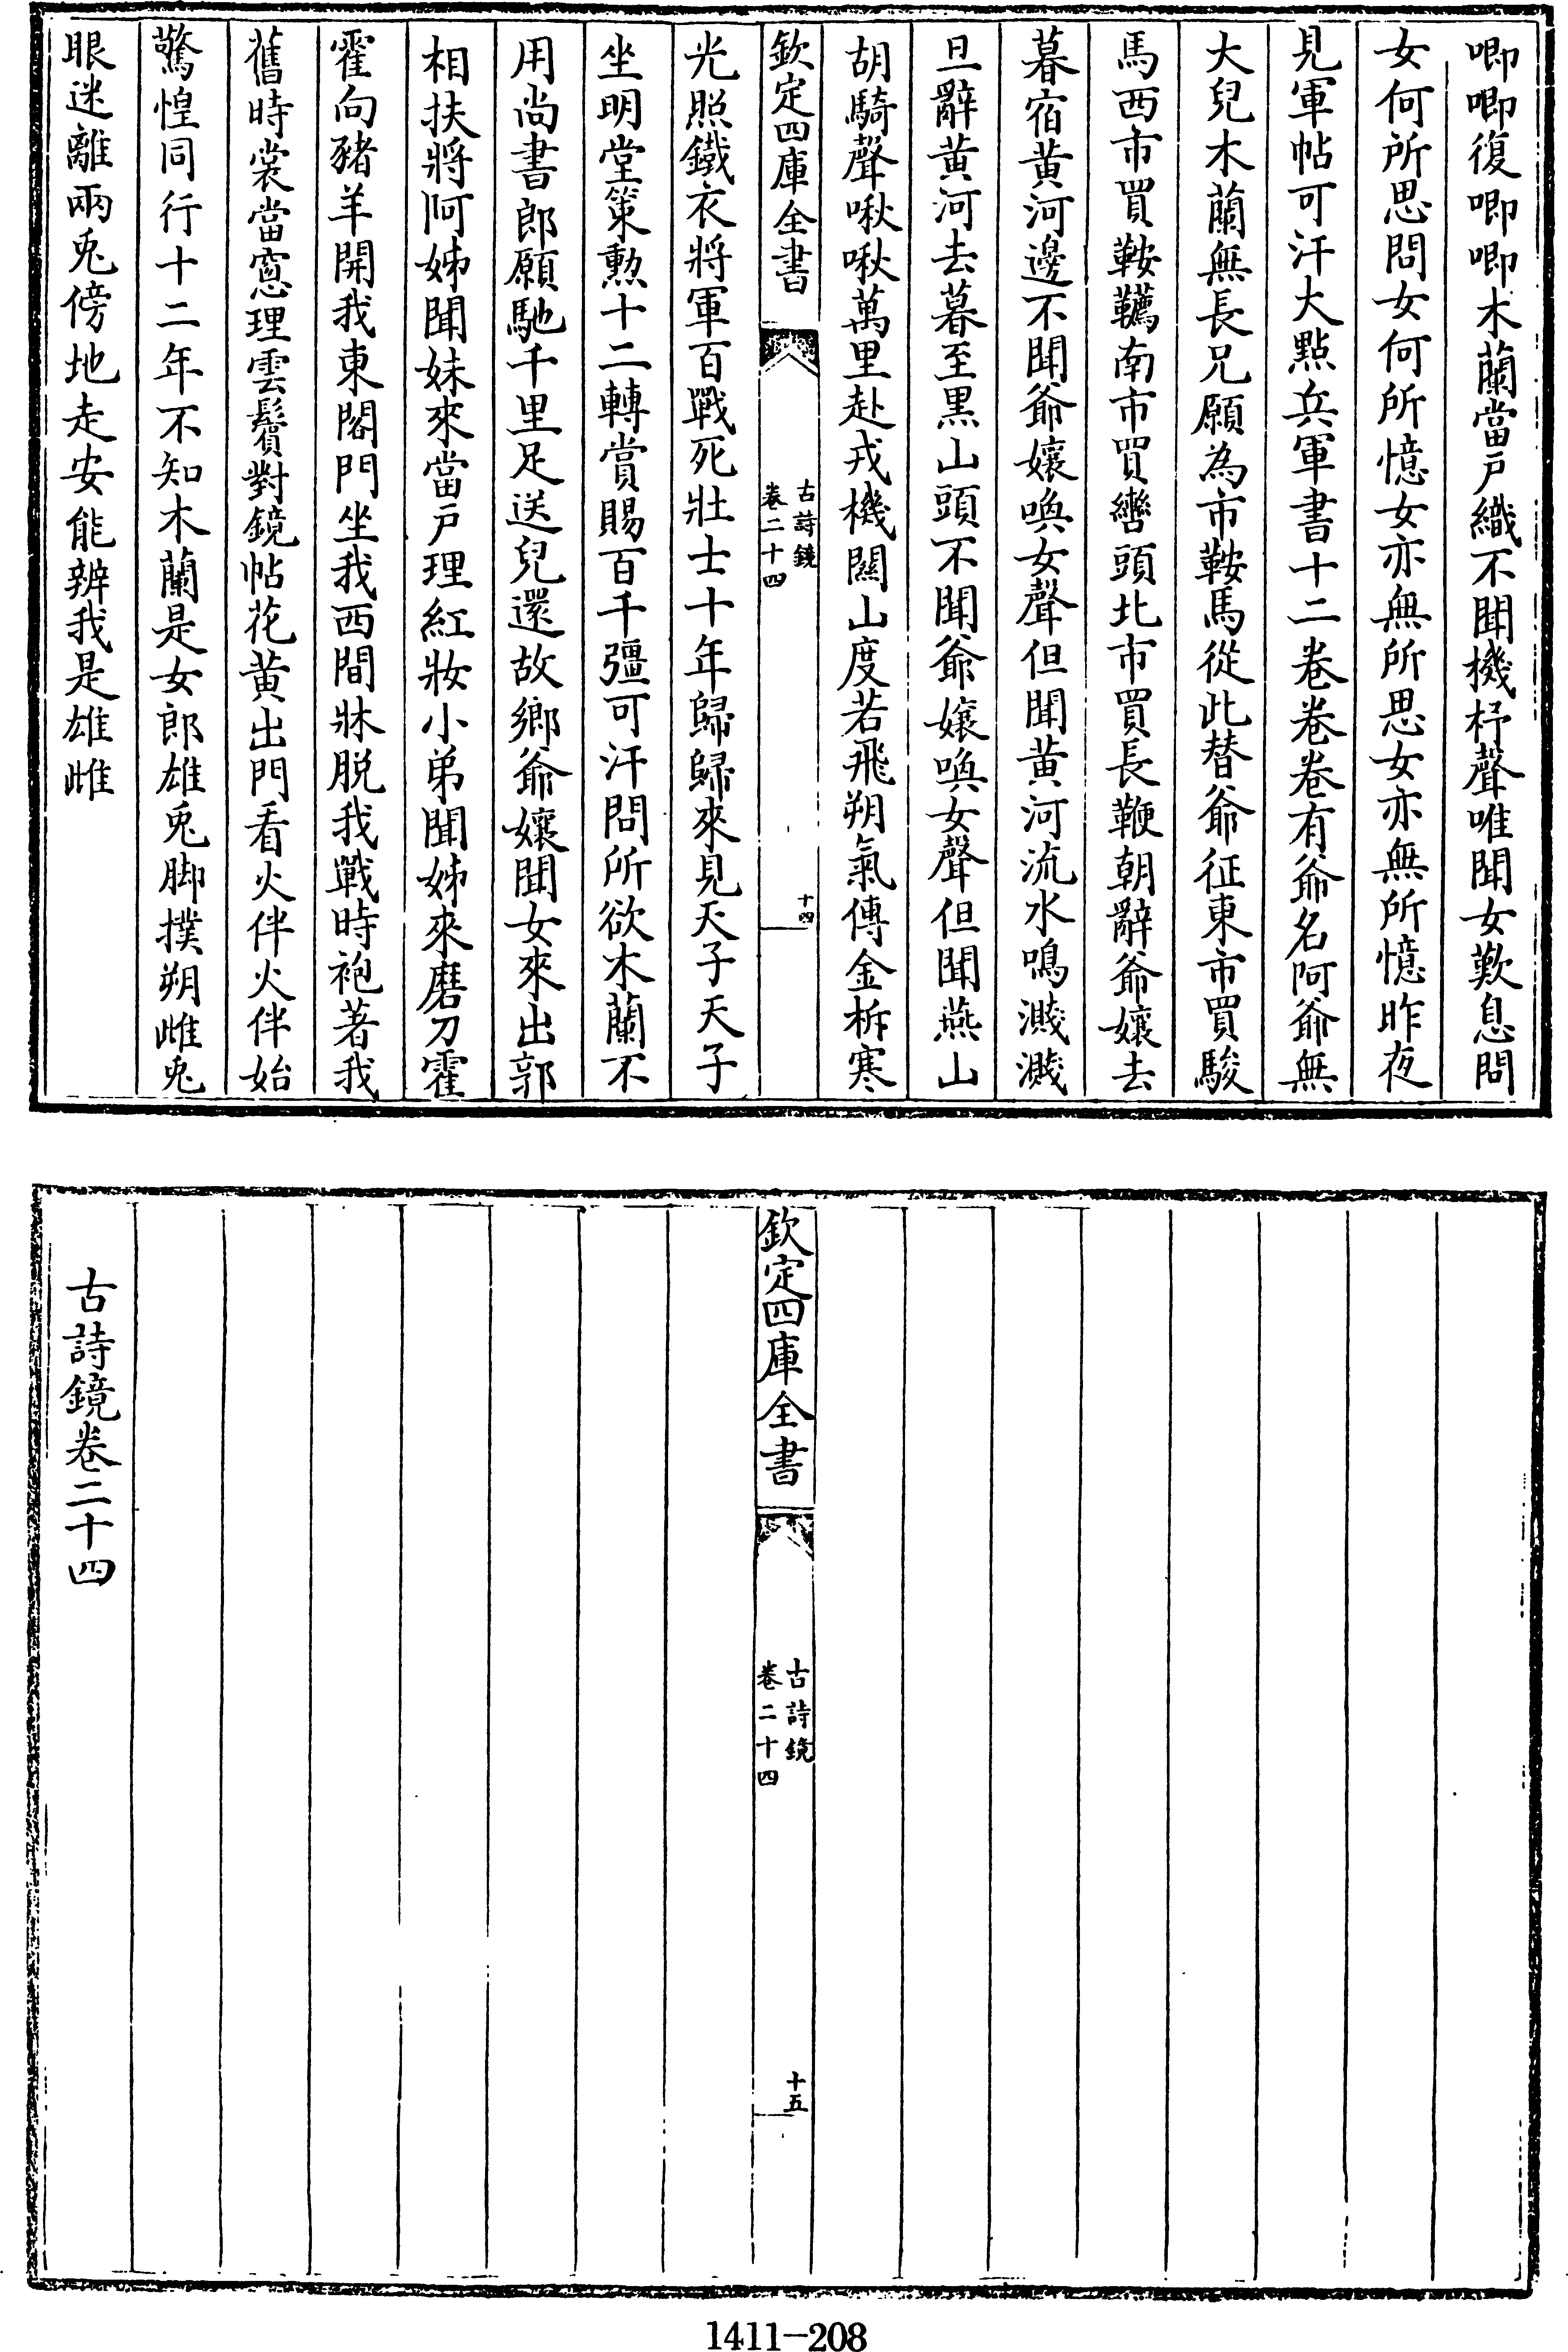 唧唧復唧唧木蘭當戸織不聞機杼聲唯聞女歎息問
女何所思問女何所憶女亦無所思女亦無所憶昨夜
見軍帖可汗大點兵軍書十二卷卷卷有爺名阿爺無
大兒木蘭無長兄願為市鞍馬從此替爺征東市買駿
馬西市買鞍韉南市買轡頭北市買長鞭朝辭爺孃去
暮宿黄河邊不聞爺孃喚女聲但聞黄河流水鳴濺濺
旦辭黄河去暮至黒山頭不聞爺孃喚女聲但聞燕山
胡騎聲啾啾萬里赴戎機關山度若飛朔氣傳金柝寒
欽定四庫全書
古詩鏡
卷二十四
十四
光照鐵衣將軍百戰死壯士十年歸歸來見天子天子
坐明堂策勲十二轉賞賜百千彊可汗問所欲木蘭不
用尚書郎願馳千里足送兒還故鄉爺孃聞女來出郭
相扶將阿姊聞妹來當戸理紅妝小弟聞姊來磨刀霍
霍向豬羊開我東閣門坐我西間牀脱我戰時袍著我
舊時裳當窻理雲鬢對鏡帖花黄出門看火伴火伴始
驚惶同行十二年不知木蘭是女郎雄兎脚撲朔雌兎
眼迷離兩兎傍地走安能辨我是雄雌
欽定四庫全書
古詩鏡
卷二十四
十五
古詩鏡卷二十四
1411-208